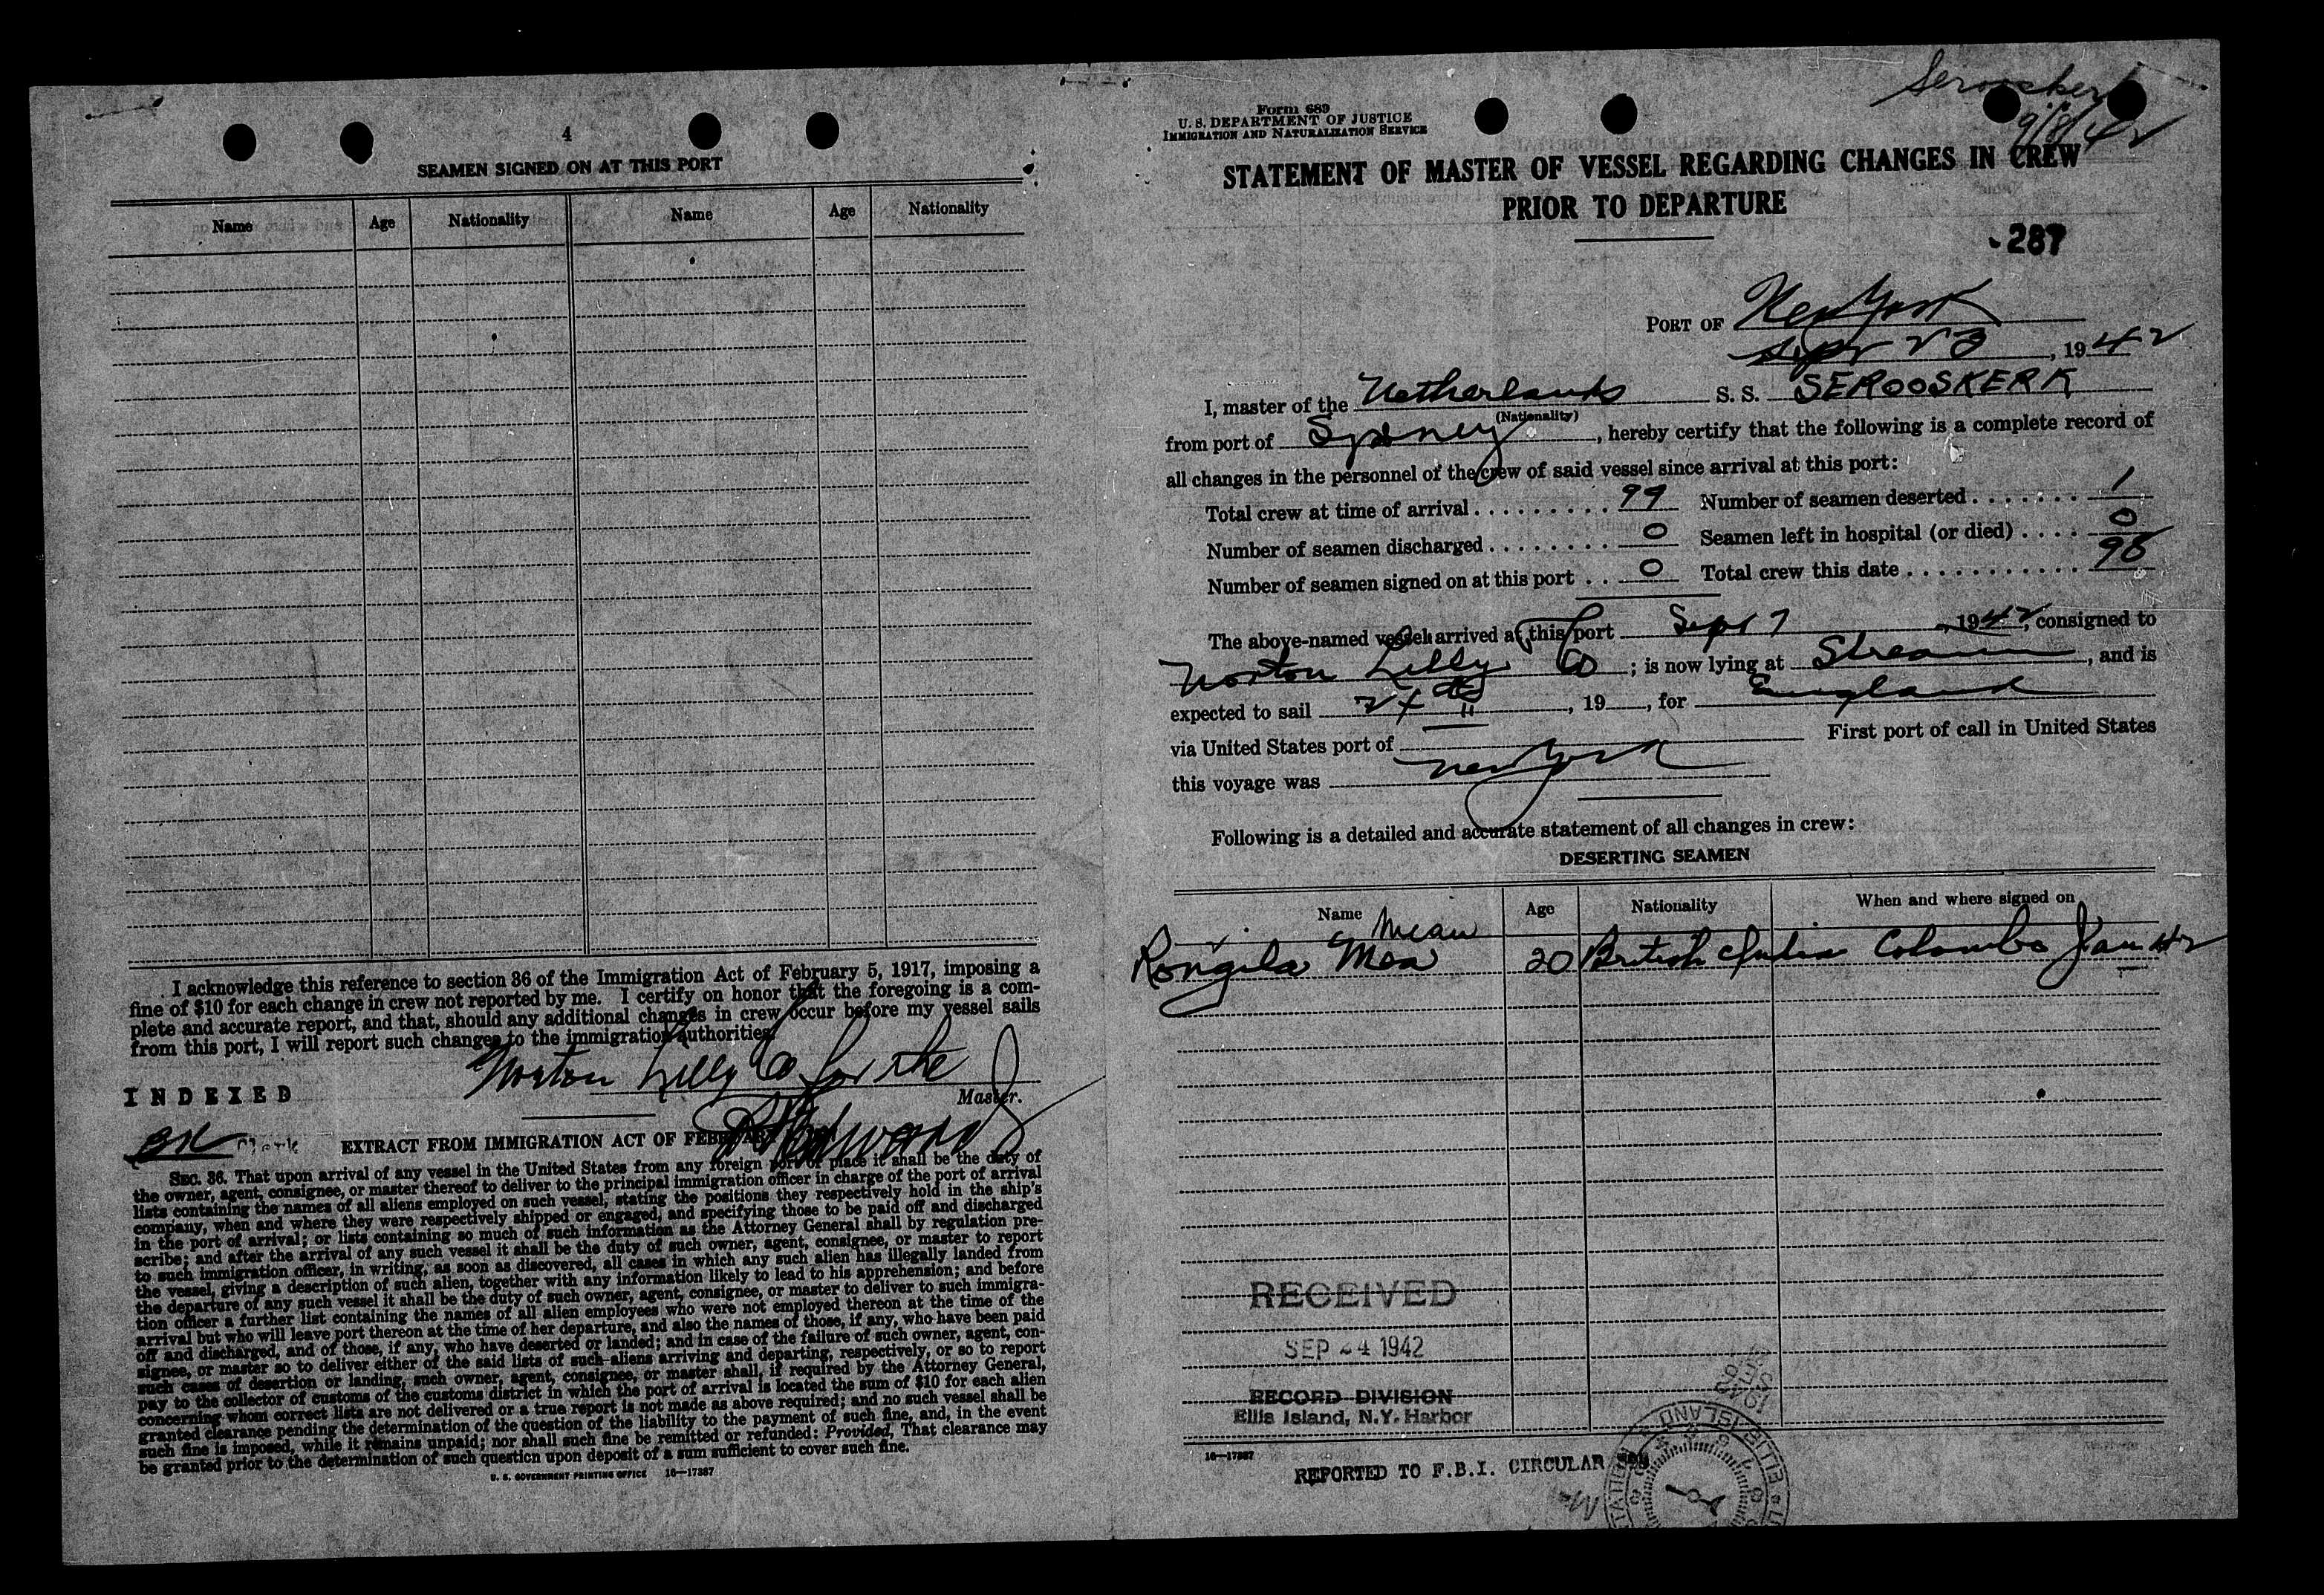 4
SEAMEN SIGNED ON AT THIS PORT
Name Age Nationality Name Age Nationality
I acknowledge this reference to section 36 of the Immigration Act of February 5, 1917, imposing a
fine of $10 for each change in crew not reported by me. I certify on honor that the foregoing is a com-
plete and accurate report, and that, should any additional changes in crew occur before my vessel sails
from this port, I will report such changes to the immigration authorities.
Norton Lilly Co for the
Master.
INDEXED
Clerk
EXTRACT FROM IMMIGRATION ACT OF
SEC. 36. That upon arrival of any vessel in the United States from any foreign port or place it shall be the duty of
the owner, agent, consignee, or master thereof to deliver to the principal immigration officer in charge of the port of arrival
lists containing the names of all aliens employed on such vessel, stating the positions they respectively hold in the ship's
company, when and where they were respectively shipped or engaged, and specifying those to be paid off and discharged
in the port of arrival; or lists containing so much of such information as the Attorney General shall by regulation pre-
scribe; and after the arrival of any such vessel it shall be the duty of such owner, agent, consignee, or master to report
to such immigration officer, in writing, as soon as discovered, all cases in which any such alien has illegally landed from
the vessel, giving a description of such alien, together with any information likely to lead to his apprehension; and before
the departure of any such vessel it shall be the duty of such owner, agent, consignee, or master to deliver to such immigra-
tion officer a further list containing the names of all alien employees who were not employed thereon at the time of the
arrival but who will leave port thereon at the time of her departure, and also the names of those, if any, who have been paid
off and discharged, and of those, if any, who have deserted or landed; and in case of the failure of such owner, agent, con-
signee, or master so to deliver either of the said lists of such aliens arriving and departing, respectively, or so to report
such cases of desertion or landing, such owner, agent, consignee, or master shall, if required by the Attorney General,
pay to the collector of customs of the customs district in which the port of arrival is located the sum of $10 for each alien
concerning whom correct lists are not delivered or a true report is not made as above required; and no such vessel shall be
granted clearance pending the determination of the question of the liability to the payment of such fine, and, in the event
such fine is imposed, while it remains unpaid; nor shall such fine be remitted or refunded: Provided, That clearance may
be granted prior to the determination of such question upon deposit of a sum sufficient to cover such fine.
U. S. GOVERNMENT PRINTING OFFICE 16—17387
Serooskerk
9/8/42
Form 689
U. S. DEPARTMENT OF JUSTICE
IMMIGRATION AND NATURALIZATION SERVICE
STATEMENT OF MASTER OF VESSEL REGARDING CHANGES IN CREW
PRIOR TO DEPARTURE
287
PORT OF New York
Sept 23, 1942
I, master of the Netherlands S. S. SEROOSKERK
(Nationality)
from port of Sydney, hereby certify that the following is a complete record of
all changes in the personnel of the crew of said vessel since arrival at this port:
Total crew at time of arrival 99 Number of seamen deserted 1
Number of seamen discharged 0 Seamen left in hospital (or died) 0
Number of seamen signed on at this port 0 Total crew this date 98
The above-named vessel arrived at this port Sept 7, 1942, consigned to
Norton Lilly Co; is now lying at Stream, and is
expected to sail 24th, 19 , for England
via United States port of First port of call in United States
this voyage was New York
Following is a detailed and accurate statement of all changes in crew:
DESERTING SEAMEN
Name Age Nationality When and where signed on
Mean
Rongila Mea 20 British India Colombo Jan 42
RECEIVED
SEP 24 1942
RECORD DIVISION
Ellis Island, N.Y. Harbor
16—17387
REPORTED TO F.B.I. CIRCULAR
ELLIS ISLAND